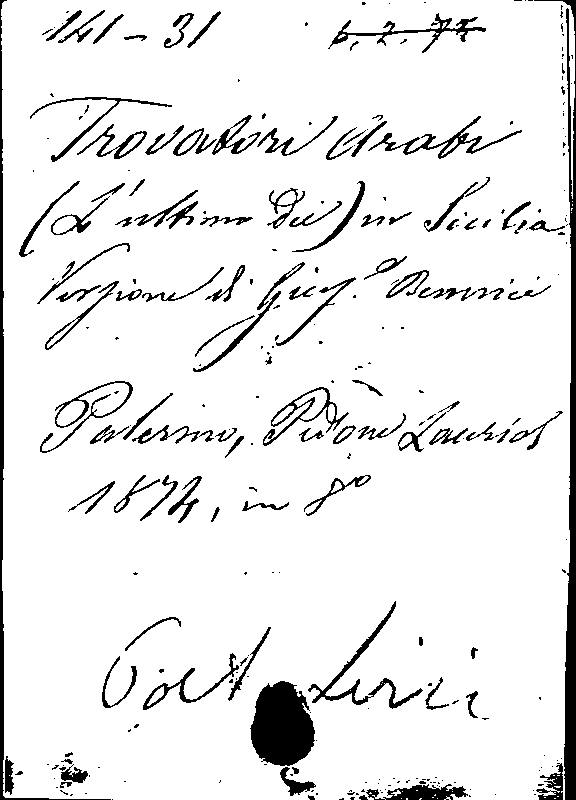 141-31 6.2.72
Trovatori Arabi
(L'ultimo dei) in Sicilia.
Versione di
Palermo, Pedone Lauriel
1874, in 8º
Poet Lirici